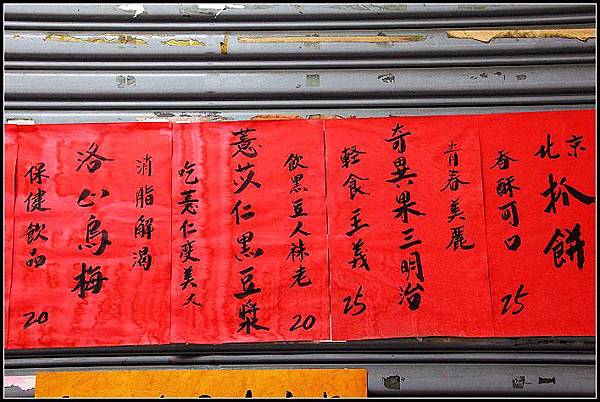 北京
抓餅
香酥可口 25
青春美麗
奇異果三明治
輕食主義 25
飲黑豆人老 20
薏苡仁黑豆漿
吃薏仁變美
消脂解渴
洛烏梅
保健飲品 20